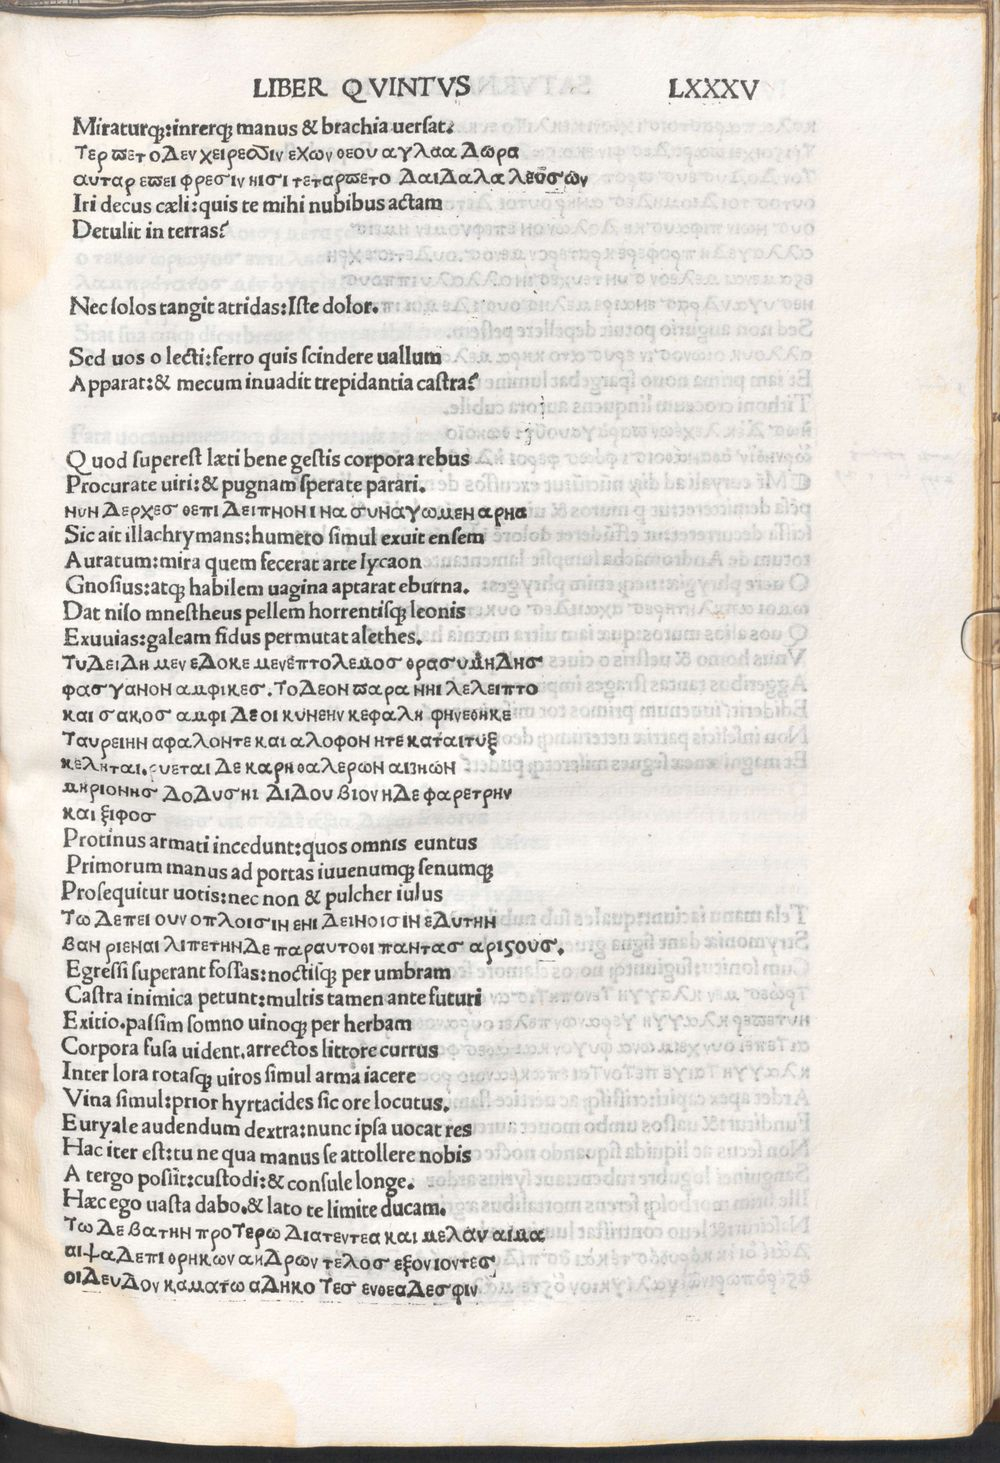 LIBER QVINTVS LXXXV
Miraturq;:inrerq; manus & brachia uersat.
Τερπετο Δεν χειρεσσιν εχων θεου αγλαα Δωρα
αυταρ επει φρεσιν ηισι τεταρπετο Δαι Δαλα λευσσων
Iri decus cæli:quis te mihi nubibus actam
Detulit in terras?
Nec solos tangit atridas:Iste dolor.
Sed uos o lecti:ferro quis scindere uallum
Apparat:& mecum inuadit trepidantia castra?
Quod superest læti bene gestis corpora rebus
Procurate uiri:& pugnam sperate parari.
ΝΥΝ Δ ερχεσ θεπι ΔειπΝΟΝ ΙΝα συΝαγωμεΝ αρηα
Sic ait illachrymans:humero simul exuit ensem
Auratum:mira quem fecerat arte lycaon
Gnosius:atq; habilem uagina aptarat eburna.
Dat niso mnestheus pellem horrentisq; leonis
Exuuias:galeam fidus permutat alethes.
ΤυΔειΔη μεν εΔοκε μενεπτολεμοσ θρασυμηΔησ
φασγανον αμφικεσ.ΤοΔεον παρα νηι λελειπτο
και σακοσ αμφι Δε οι κυνεην κεφαληφην εθηκε
Ταυρειην αφαλοντε και αλοφον ητε καταιτυξ
κεληται.ρυεται Δε καρη θαλερων αιζηων
μηριονησ ΔοΔυσηι ΔιΔου βιον ηΔε φαρετρην
και ξιφοσ
Protinus armati incedunt:quos omnis euntus
Primorum manus ad portas iuuenumq; senumq;
Prosequitur uotis:nec non & pulcher iulus
Τω Δεπει ουν οπλοισιν ενι Δεινοισιν εΔυτην
βαν ριεναι λιπετην Δε παραυτοθι παντασ αριςουσ.
Egressi superant fossas:noctisq; per umbram
Castra inimica petunt:multis tamen ante futuri
Exitio.passim somno uinoq; per herbam
Corpora fusa uident.arrectos littore currus
Inter lora rotasq; uiros simul arma iacere
Vina simul:prior hyrtacides sic ore locutus.
Euryale audendum dextra:nunc ipsa uocat res
Hac iter est:tu ne qua manus se attollere nobis
A tergo possit:custodi:& consule longe.
Hæc ego uasta dabo.& lato te limite ducam.
Τω Δε βατην προΤερω Διατεντεα και μελαν αιμα
αιψα Δεπι θρηκων ανΔρων τελοσ εξον ιοντεσ
οι ΔευΔον καματω αΔηκο Τεσ ενθεα Δεσφιν